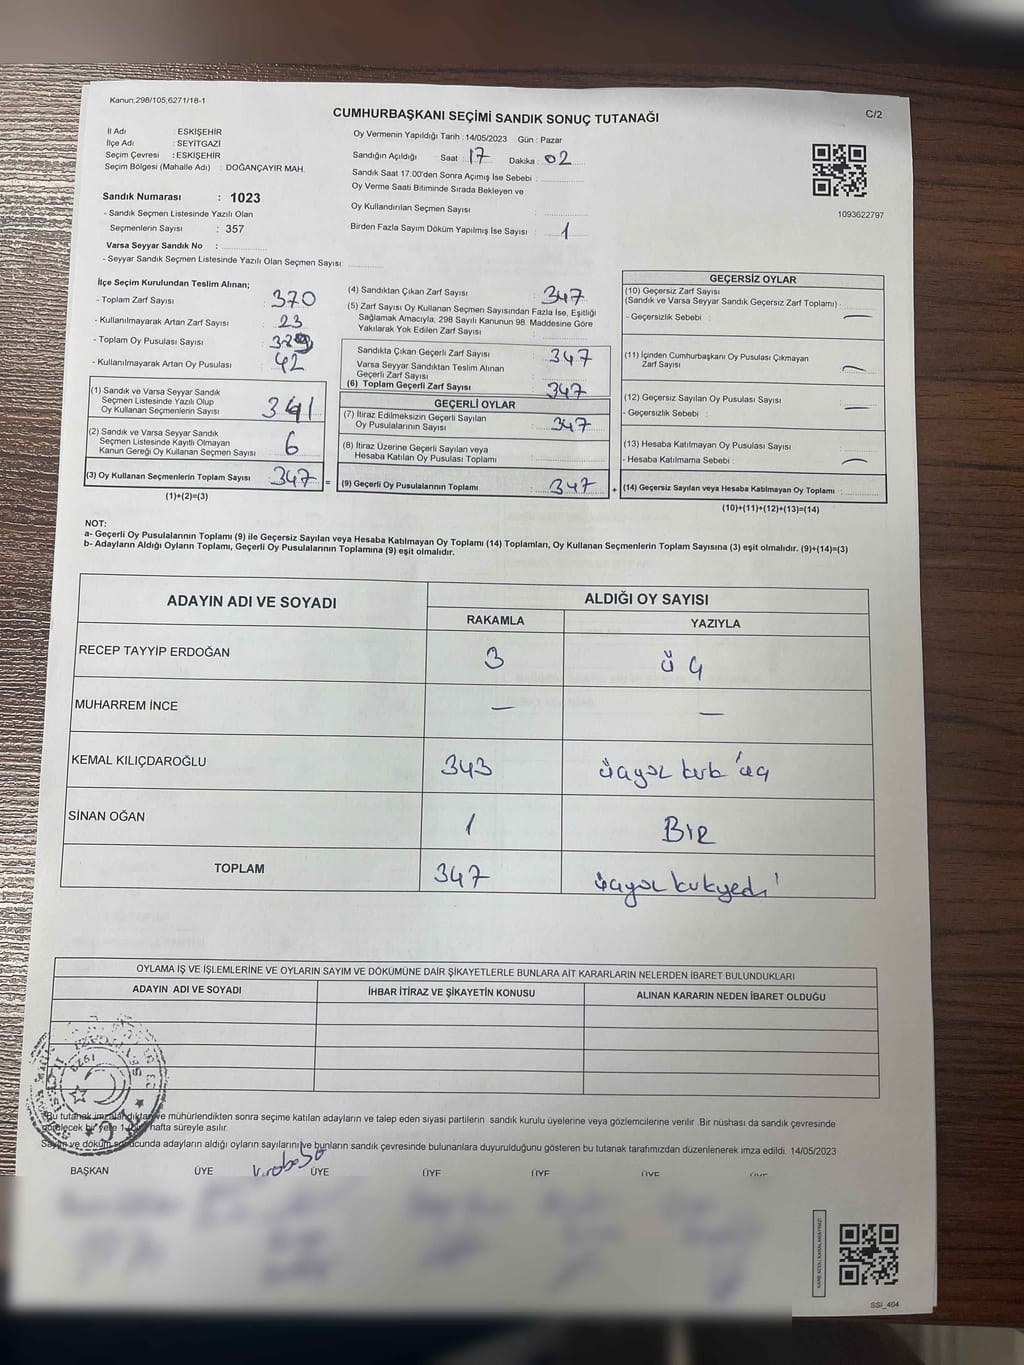 Kanun;298/105,6271/18-1
C/2
CUMHURBAŞKANI SEÇİMİ SANDIK SONUÇ TUTANAĞI
İl Adı : ESKİŞEHİR
İlçe Adı : SEYİTGAZİ
Seçim Çevresi : ESKİŞEHİR
Seçim Bölgesi (Mahalle Adı) : DOĞANÇAYIR MAH.
Sandık Numarası : 1023
- Sandık Seçmen Listesinde Yazılı Olan
Seçmenlerin Sayısı : 357
Varsa Seyyar Sandık No :
- Seyyar Sandık Seçmen Listesinde Yazılı Olan Seçmen Sayısı:
Oy Vermenin Yapıldığı Tarih : 14/05/2023 Gün : Pazar
Sandığın Açıldığı : Saat : 17 Dakika : 02
Sandık Saat 17.00'den Sonra Açımış İse Sebebi :
Oy Verme Saati Bitiminde Sırada Bekleyen ve
Oy Kullandırılan Seçmen Sayısı :
Birden Fazla Sayım Döküm Yapılmış İse Sayısı : 1
1093622797
İlçe Seçim Kurulundan Teslim Alınan;
- Toplam Zarf Sayısı : 370
- Kullanılmayarak Artan Zarf Sayısı : 23
- Toplam Oy Pusulası Sayısı :
- Kullanılmayarak Artan Oy Pusulası : 42
(1) Sandık ve Varsa Seyyar Sandık
Seçmen Listesinde Yazılı Olup
Oy Kullanan Seçmenlerin Sayısı : 341
(2) Sandık ve Varsa Seyyar Sandık
Seçmen Listesinde Kayıtlı Olmayan
Kanun Gereği Oy Kullanan Seçmen Sayısı : 6
(3) Oy Kullanan Seçmenlerin Toplam Sayısı : 347 =
(1)+(2)=(3)
(4) Sandıktan Çıkan Zarf Sayısı : 347
(5) Zarf Sayısı Oy Kullanan Seçmen Sayısından Fazla İse, Eşitliği
Sağlamak Amacıyla, 298 Sayılı Kanunun 98. Maddesine Göre
Yakılarak Yok Edilen Zarf Sayısı :
Sandıkta Çıkan Geçerli Zarf Sayısı : 347
Varsa Seyyar Sandıktan Teslim Alınan
Geçerli Zarf Sayısı :
(6) Toplam Geçerli Zarf Sayısı : 347
GEÇERLİ OYLAR
(7) İtiraz Edilmeksizin Geçerli Sayılan
Oy Pusulalarının Sayısı : 347
(8) İtiraz Üzerine Geçerli Sayılan veya
Hesaba Katılan Oy Pusulası Toplamı :
(9) Geçerli Oy Pusulalarının Toplamı : 347 +
GEÇERSİZ OYLAR
(10) Geçersiz Zarf Sayısı
(Sandık ve Varsa Seyyar Sandık Geçersiz Zarf Toplamı) :
- Geçersizlik Sebebi : —
(11) İçinden Cumhurbaşkanı Oy Pusulası Çıkmayan
Zarf Sayısı : —
(12) Geçersiz Sayılan Oy Pusulası Sayısı :
- Geçersizlik Sebebi : —
(13) Hesaba Katılmayan Oy Pusulası Sayısı :
- Hesaba Katılmama Sebebi : —
(14) Geçersiz Sayılan veya Hesaba Katılmayan Oy Toplamı :
(10)+(11)+(12)+(13)=(14)
NOT:
a- Geçerli Oy Pusulalarının Toplamı (9) ile Geçersiz Sayılan veya Hesaba Katılmayan Oy Toplamı (14) Toplamları, Oy Kullanan Seçmenlerin Toplam Sayısına (3) eşit olmalıdır. (9)+(14)=(3)
b- Adayların Aldığı Oyların Toplamı, Geçerli Oy Pusulalarının Toplamına (9) eşit olmalıdır.
ADAYIN ADI VE SOYADI
ALDIĞI OY SAYISI
RAKAMLA YAZIYLA
RECEP TAYYİP ERDOĞAN 3 üç
MUHARREM İNCE — —
KEMAL KILIÇDAROĞLU 343
SİNAN OĞAN 1 BİR
TOPLAM 347
OYLAMA İŞ VE İŞLEMLERİNE VE OYLARIN SAYIM VE DÖKÜMÜNE DAİR ŞİKAYETLERLE BUNLARA AİT KARARLARIN NELERDEN İBARET BULUNDUKLARI
ADAYIN ADI VE SOYADI İHBAR İTİRAZ VE ŞİKAYETİN KONUSU ALINAN KARARIN NEDEN İBARET OLDUĞU
Bu tutanak imzalandıktan ve mühürlendikten sonra seçime katılan adayların ve talep eden siyasi partilerin sandık kurulu üyelerine veya gözlemcilerine verilir. Bir nüshası da sandık çevresinde
görülecek bir yere 1 hafta süreyle asılır.
Sayım ve döküm sonucunda adayların aldığı oyların sayılarını ve bunların sandık çevresinde bulunanlara duyurulduğunu gösteren bu tutanak tarafımızdan düzenlenerek imza edildi. 14/05/2023
BAŞKAN ÜYE ÜYE ÜYE ÜYE ÜYE ÜYE
SSI_404